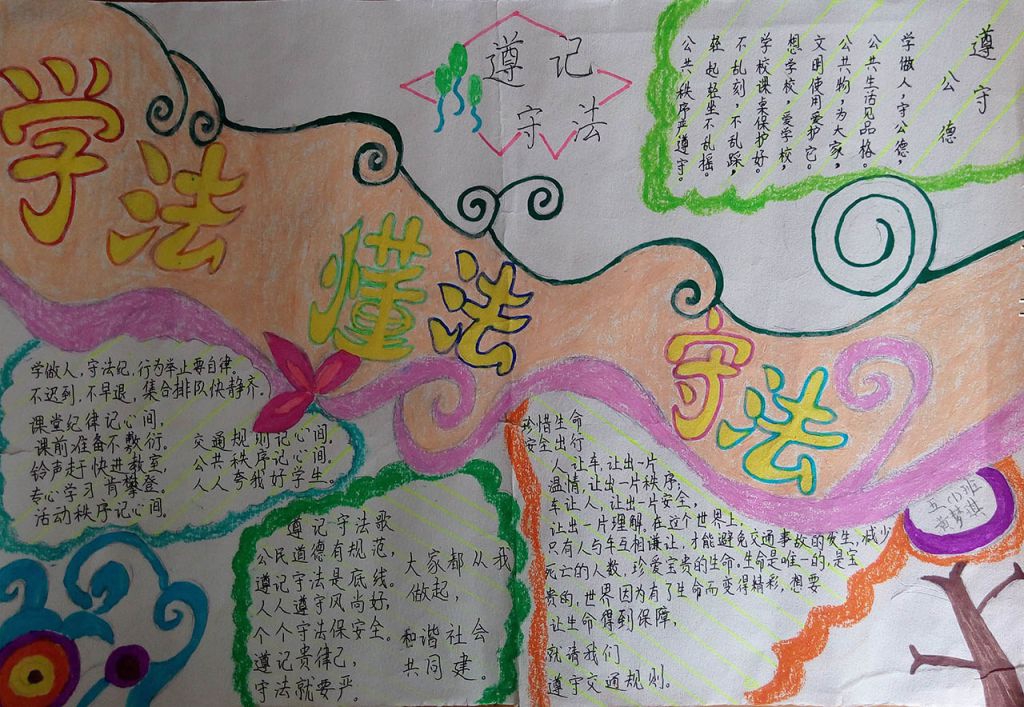 学法
懂法
守法
遵记
守法
遵守
公德
学做人，守公德，
公共生活见品格。
公共物，为大家，
文明使用爱护它。
想学校，爱学校，
学校课桌保护好。
不乱刻，不乱踩，
轻起轻坐不乱摇。
公共秩序严遵守。
学做人，守法纪，行为举止要自律。
不迟到，不早退，集合排队快静齐。
课堂纪律记心间，
课前准备不敷衍。
铃声打快进教室，
专心学习肯攀登。
活动秩序记心间。
交通规则记心间。
公共秩序记心间。
人人夸我好学生。
遵记守法歌
公民道德有规范，
遵记守法是底线。
人人遵守风尚好，
个个守法保安全。
遵记贵律己，
守法就要严。
大家都从我
做起，
和谐社会
共同建。
珍惜生命
安全出行
人让车，让出一片
温情，让出一片秩序，
车让人，让出一片安全，
让出一片理解，在这个世界上，
只有人与车互相谦让，才能避免交通事故的发生，减少
死亡的人数，珍爱宝贵的生命，生命是唯一的，是宝
贵的，世界因为有了生命而变得精彩，想要
让生命得到保障，
就请我们
遵守交通规则。
五(1)班